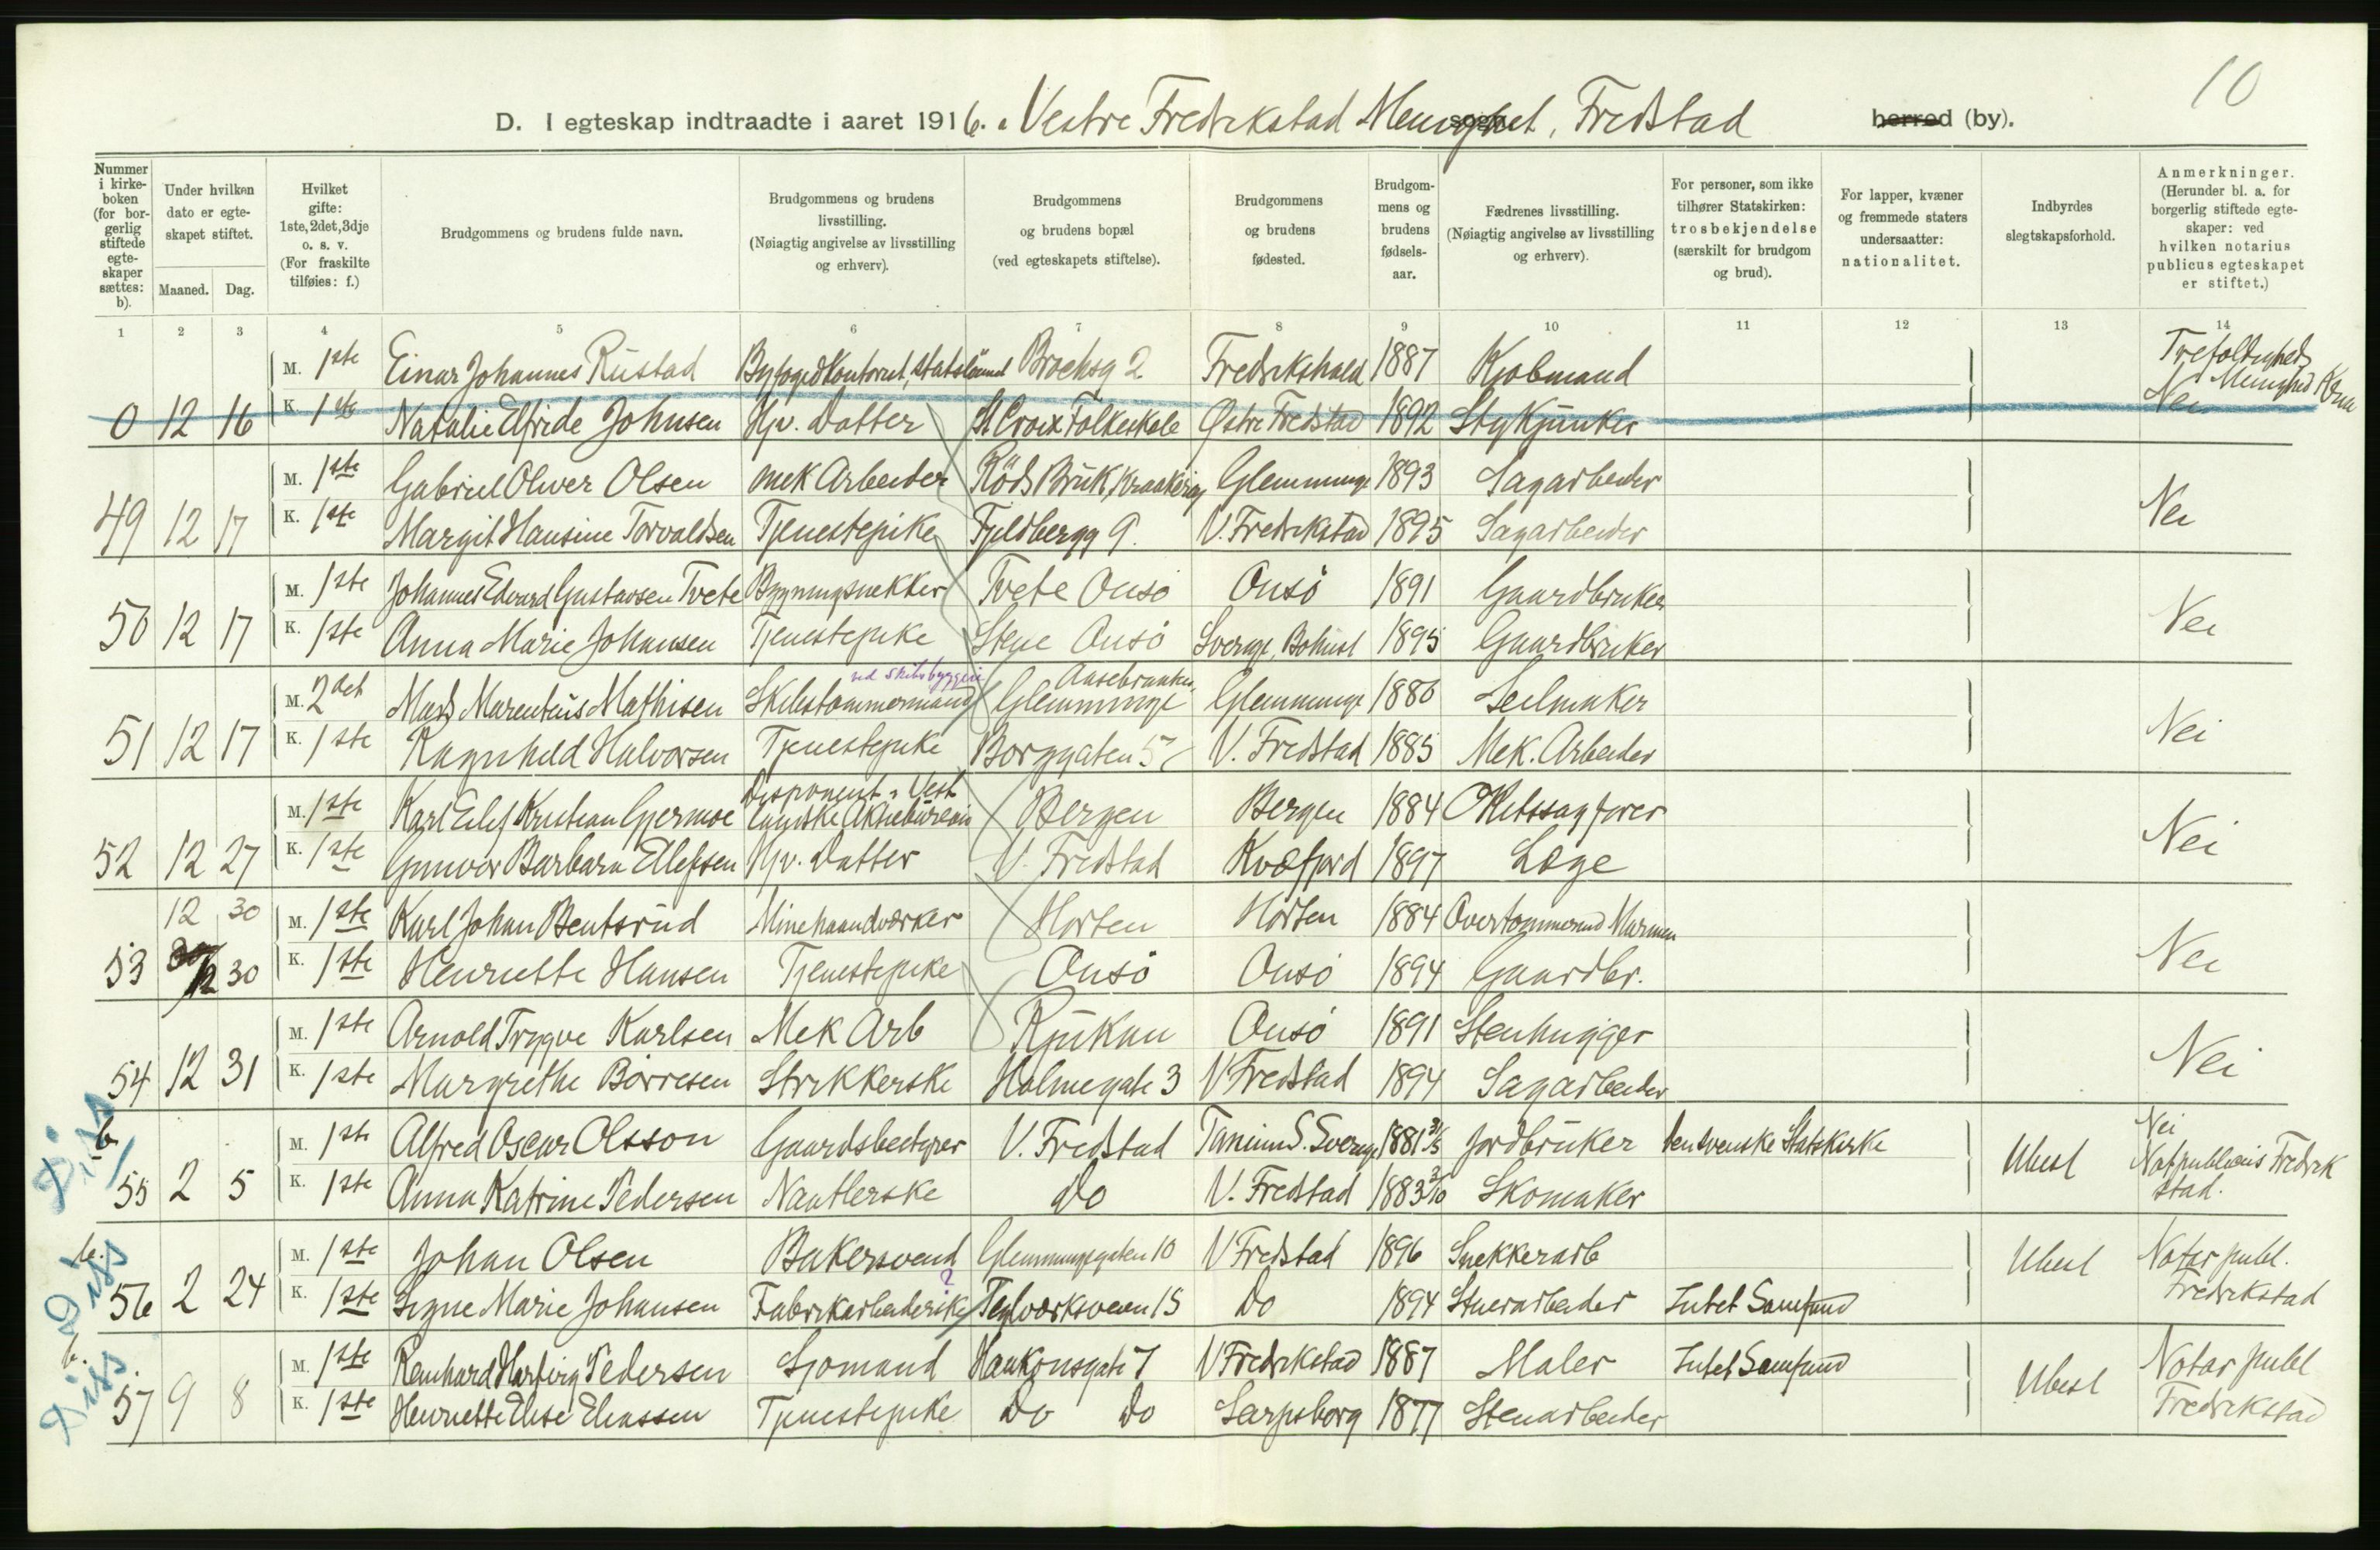 10
D. I egteskap indtraadte i aaret 1916. i Vestre Fredrikstad Menighet, Fredstad sogn herred (by).
Nummer i kirkeboken (for borgerlig stiftede egteskaper sættes: b).
Under hvilken dato er egteskapet stiftet.
Maaned. Dag.
Hvilket gifte: 1ste, 2det, 3dje o. s. v. (For fraskilte tilføies: f.)
Brudgommens og brudens fulde navn.
Brudgommens og brudens livsstilling. (Nøiagtig angivelse av livsstilling og erhverv).
Brudgommens og brudens bopæl (ved egteskapets stiftelse).
Brudgommens og brudens fødested.
Brudgommens og brudens fødselsaar.
Fædrenes livsstilling. (Nøiagtig angivelse av livsstilling og erhverv).
For personer, som ikke tilhører Statskirken: trosbekjendelse (særskilt for brudgom og brud).
For lapper, kvæner og fremmede staters undersaatter: nationalitet.
Indbyrdes slegtskapsforhold.
Anmerkninger. (Herunder bl. a. for borgerlig stiftede egteskaper: ved hvilken notarius publicus egteskapet er stiftet.)
1 2 3 4 5 6 7 8 9 10 11 12 13 14
M. 1ste Einar Johannes Rustad Byfogedkontorist, statslönnet Brochsg 2 Fredrikshald 1887 Kjøbmand Trefoldigheds Menighed Kr.nia
0 12 16 K. 1ste Natalie Elfride Johnsen Hjv. Datter St Croix Folkeskole Østre Fredstad 1892 Stykjunker Nei
M. 1ste Gabriel Oliver Olsen Mek Arbeider Röds Bruk, Kraakeröy Glemminge 1893 Sagarbeider
49 12 17 K. 1ste Margit Hansine Torvaldsen Tjenestepike Fjeldbergg 9. V. Fredrikstad 1895 Sagarbeider Nei
M. 1ste Johannes Edvard Gustavsen Tvete Bygningsnekker Tvete Onsö Onsö 1891 Gaardbruker
50 12 17 K. 1ste Anna Marie Johansen Tjenestepike Stene Onsö Sverige, Bohusl 1895 Gaardbruker Nei
ved Skibsbyggeri
M. 2det Mads Marentius Mathisen Skibstømmermand Glemminge 1880 Seilmaker
51 12 17 K. 1ste Ragnhild Halvorsen Tjenestepike Borggaten 5 V. Fredstad 1885 Mek. Arbeider Nei
M. 1ste Karl Eilef Kristian Gjermoe Disponent i Vestlandske Aktiebureau Bergen Bergen 1884 Oretssagfører
52 12 27 K. 1ste Gunvor Barbara Ellefsen Hjv. Datter V. Fredstad Kvæfjord 1897 Læge Nei
12 30 M. 1ste Karl Johan Bentsrud Minehaandværker Horten Horten 1884 Overtømmermd Marinen
53 12 30 K. 1ste Henriette Hansen Tjenestepike Onsö Onsö 1894 Gaardbr. Nei
M. 1ste Arnold Trygve Karlsen Mek Arb Rjukan Onsö 1891 Stenhugger
54 12 31 K. 1ste Margrethe Börresen Strikkerske Holmegate 3 V Fredstad 1894 Sagarbeider Nei
b. Diss
M. 1ste Alfred Oscar Olsson Gaardsbestyrer V. Fredstad Tanum S. Sverige 1881 Jordbruker Den svenske Statskirke Nei
55 2 5 K. 1ste Anna Katrine Pedersen Naatlerske Do V. Fredstad 1883 Skomaker Ubesl Not publicus Fredrikstad.
b. Diss
M. 1ste Johan Olsen Bakersvend Glemmingegaten 10 V Fredstad 1896 Snekkerarb
56 2 24 K. 1ste Signe Marie Johansen Fabrikarbeiderske ? Teglværksveien 15 Do 1894 Stuerarbeider Intet Samfund Ubesl Notar publ. Fredrikstad
b. Diss
M. 1ste Reinhard Hartvig Pedersen Sjømand Haakonsgate 7 V Fredrikstad 1887 Maler Intet Samfund
57 9 8 K. 1ste Henriette Elise Eliassen Tjenestepike Do Do Sarpsborg 1877 Stenarbeider Ubesl Notar publ Fredrikstad